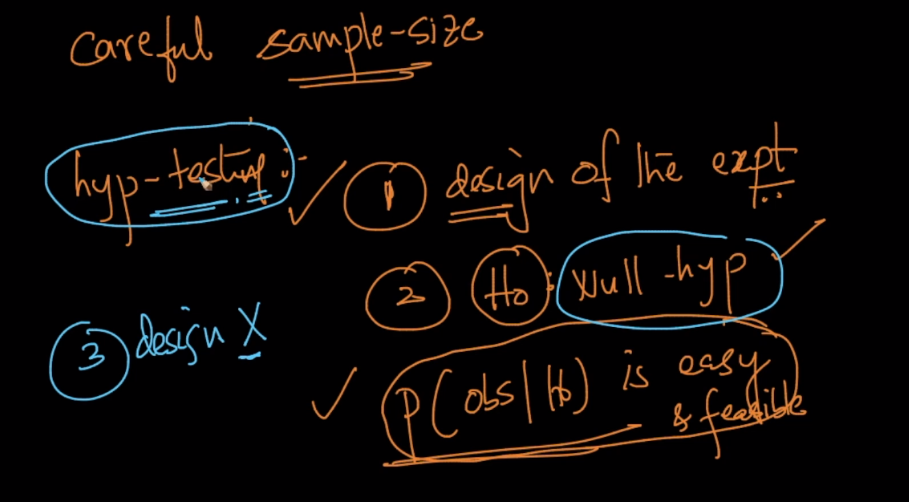 careful sample-size
hyp-testing :-
① design of the expt
② H0: Null-hyp
③ design X
P(obs|H0) is easy
& feasible